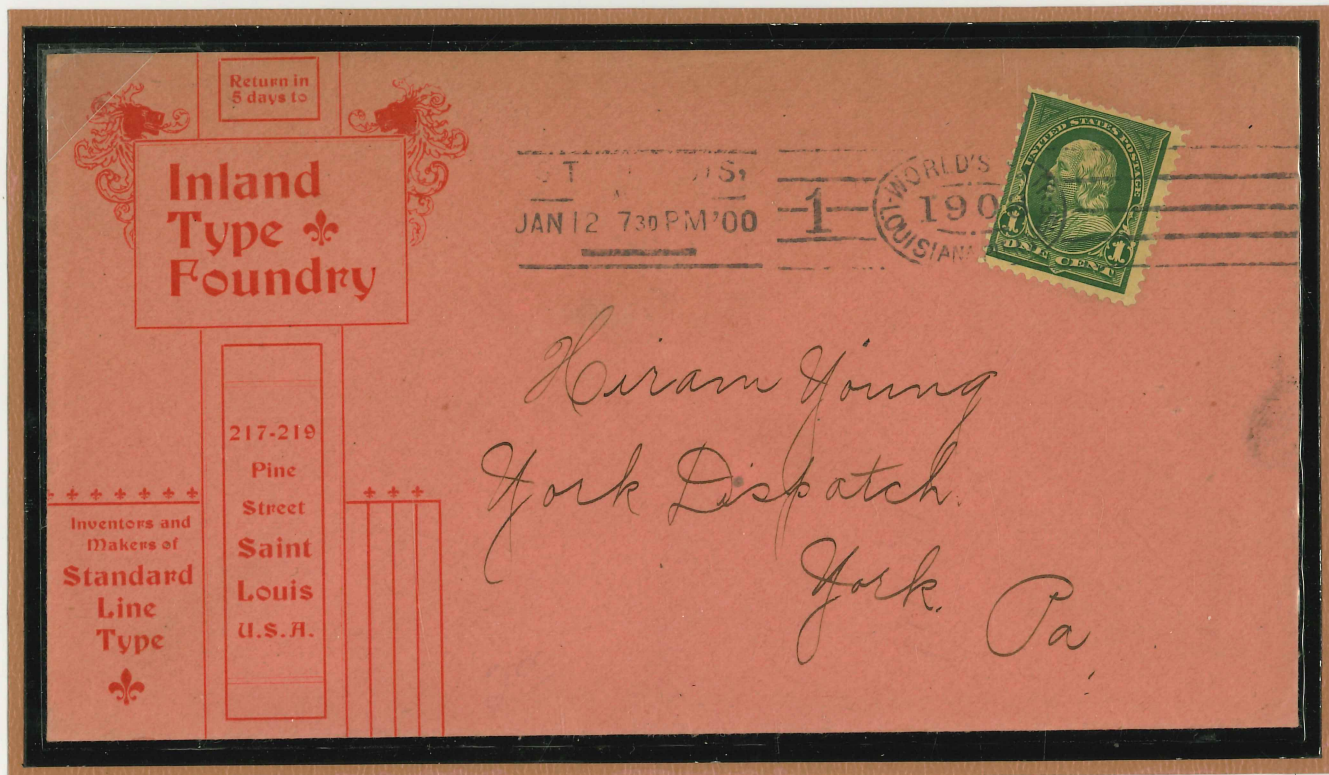 Return in
5 days to
Inland
Type
Foundry
217-219
Pine
Street
Saint
Louis
U.S.A.
Inventors and
Makers of
Standard
Line
Type
JAN 12 7 30 PM '00
1
WORLD'S
190
UNITED STATES POSTAGE
1 1
ONE CENT
Hiram Young
York Dispatch.
York. Pa.